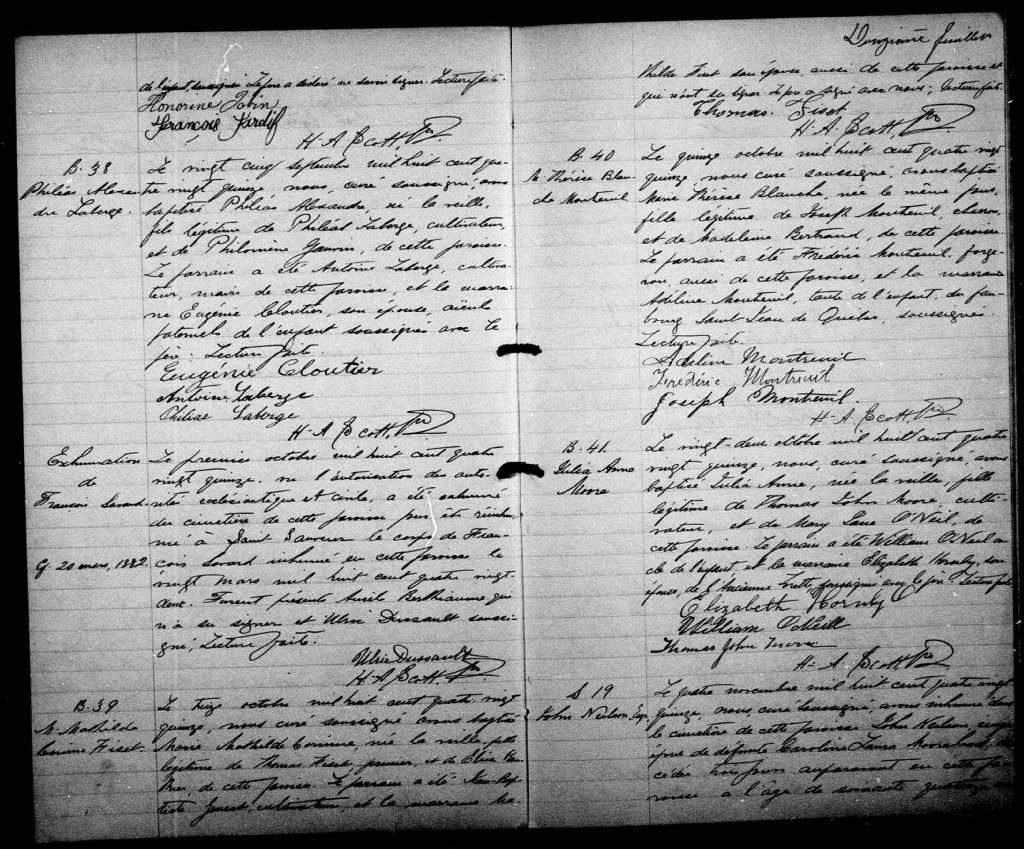 de l'enfant, soussignés. Le père a déclaré ne savoir signer. Lecture faite.
Honorine Robin
François Hardy
H. A. Scott, Ptre
B. 38
Philéas Alexandre Laberge.
Le vingt cinq septembre mil huit cent quatre
vingt quinze nous, curé soussigné, avons
baptisé Philéas Alexandre, né la veille,
fils légitime de Philéas Laberge, cultivateur,
et de Philomène Gauvin, de cette paroisse.
Le parrain a été Antoine Laberge, cultiva-
teur, maire de cette paroisse, et la marrai-
ne Eugénie Cloutier, son épouse, aïeuls
paternels de l'enfant soussignés avec le
père. Lecture faite.
Eugénie Cloutier
Antoine Laberge
Philias Laberge
H. A. Scott, Ptre
Exhumation
de
François Savard
G. 20 mars, 1882.
Le premier octobre mil huit cent quatre
vingt quinze, vu l'autorisation des auto-
rités ecclésiastique et civile, a été exhumé
du cimetière de cette paroisse pour être réinhu-
mé à Saint Sauveur le corps de Fran-
çois Savard inhumé en cette paroisse le
vingt mars mil huit cent quatre vingt
deux. Furent présents Berthiaume qui
n'a su signer et Ulric Dussault soussi-
gné; Lecture faite.
Ulric Dussault
H. A. Scott Ptre
B. 39
M. Mathilde
Corinne Fiset
Le treize octobre mil huit cent quatre vingt
quinze, nous curé soussigné avons baptisé
Marie Mathilde Corinne, née la veille fille
légitime de Thomas Fiset, et de
de cette paroisse. Le parrain a été Jean-Bap-
tiste cultivateur, et la marraine Ma-
Douzième feuillet
thilde Fiset son épouse, aussi de cette paroisse et
qui n'ont su signer. Le père a signé avec nous; Lecture faite.
Thomas. Fiset
H. A. Scott, Ptre
B. 40
M. Thérèse Blan-
che Montreuil
Le quinze octobre mil huit cent quatre vingt
quinze nous curé soussigné, avons baptisé
Marie Thérèse Blanche, née le même jour,
fille légitime de Joseph Montreuil,
et de Madeleine Bertrand, de cette paroisse.
Le parrain a été Frédéric Montreuil, forge-
ron aussi de cette paroisse, et la marraine
Adéline Montreuil, tante de l'enfant, du fau-
bourg Saint-Jean de Québec, soussignés.
Lecture faite.
Adeline Montreuil
Frédéric Montreuil
Joseph Montreuil.
H. A. Scott, Ptre
B. 41.
Julia Anne
Moore
Le vingt-deux octobre mil huit cent quatre
vingt quinze, nous, curé soussigné, avons
baptisé Julia Anne, née la veille, fille
légitime de Thomas John Moore, culti-
vateur, et de Mary Jane O'Neil, de
cette paroisse. Le parrain a été William O'Neil on-
cle de l'enfant et la marraine Elizabeth Hornby, son
épouse, de l'Ancienne Lorette, soussignés avec le père. Lecture faite.
Elizabeth Hornby
William O'Neill
Thomas John Moore
H. A. Scott Ptre
S 19
John Neilson, Esq.
Le quatre novembre mil huit cent quatre vingt
quinze, nous, curé soussigné, avons inhumé dans
le cimetière de cette paroisse John Neilson,
époux de défunte Caroline Laura Moorhead, dé-
cédé trois jours auparavant en cette pa-
roisse à l'âge de soixante